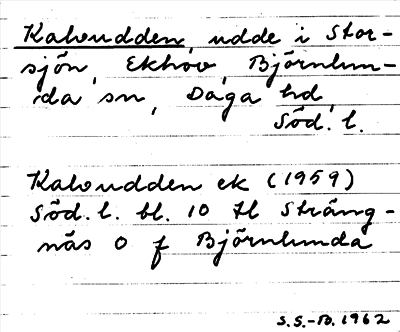 Kalvudden, udde i Stor-
sjön, Ekhov, Björnlun-
da sn, Daga hd,
Söd. l.
Kalvudden ek (1959)
Söd. l. bl. 10 tl Sträng-
näs O f Björnlunda
S.S.-B. 1962